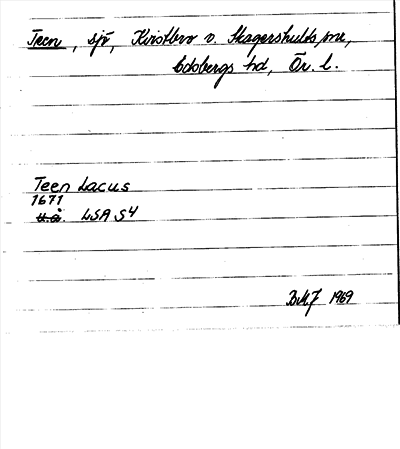 Teen, sjö, Kvistbro o. Skagershults snr,
Edsbergs hd, Ör. l.
Teen Lacus
1671
u.å. LSA S4
BMJ 1969